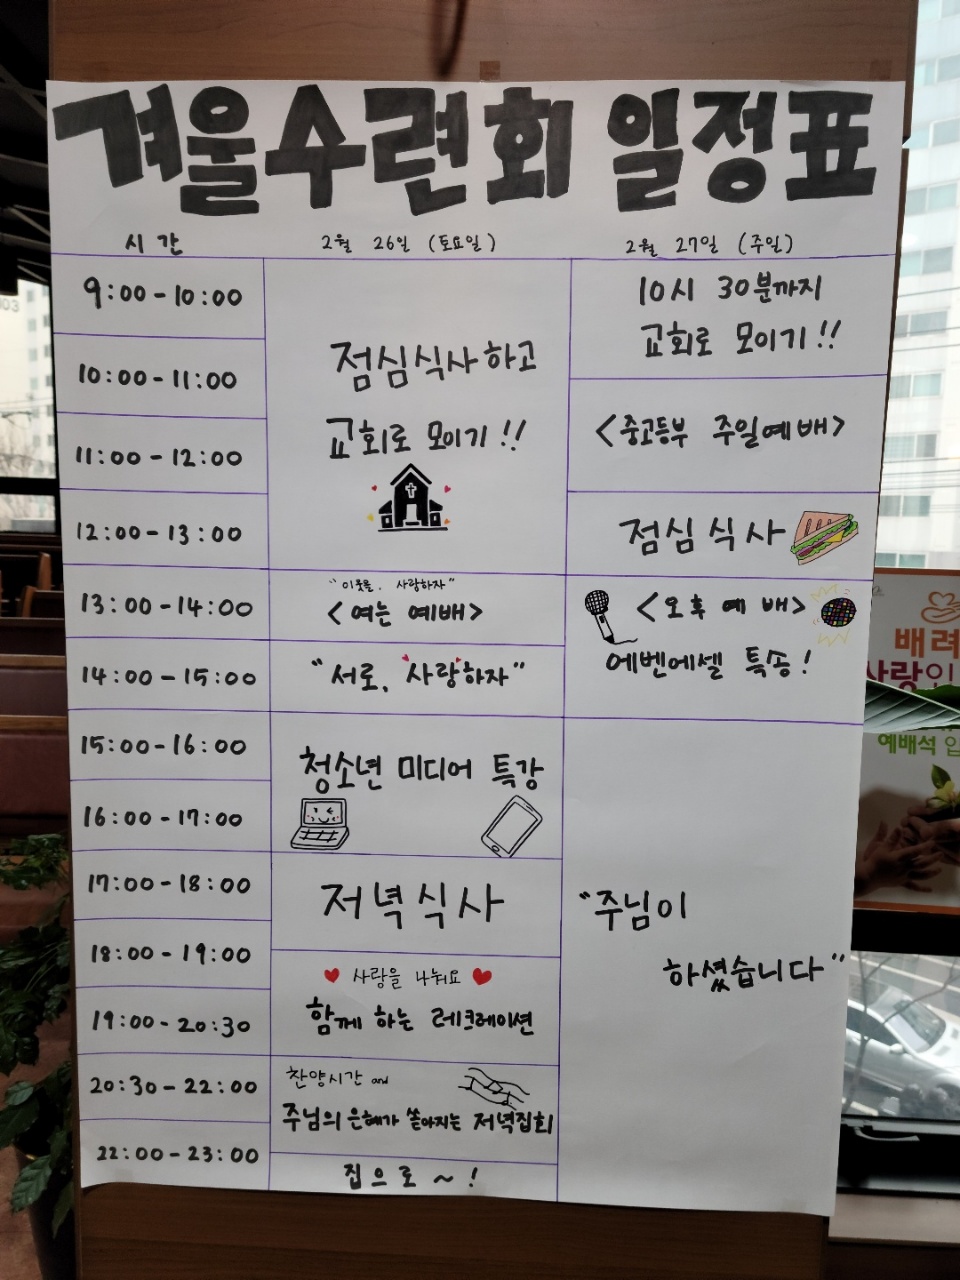 겨울수련회 일정표
시간
2월 26일 (토요일)
2월 27일 (주일)
9:00-10:00
10:00-11:00
11:00-12:00
12:00-13:00
13:00-14:00
14:00-15:00
15:00-16:00
16:00-17:00
17:00-18:00
18:00-19:00
19:00-20:30
20:30-22:00
22:00-23:00
점심식사하고
교회로 모이기!!
"이웃을, 사랑하자"
<여는 예배>
"서로, 사랑하자"
청소년 미디어 특강
저녁식사
사랑을 나눠요
함께 하는 레크레이션
찬양시간 and
주님의 은혜가 쏟아지는 저녁집회
집으로~!
10시 30분까지
교회로 모이기!!
<중고등부 주일예배>
점심식사
<오후 예배>
에벤에셀 특송!
"주님이
하셨습니다"
배려
사랑인
예배석 입